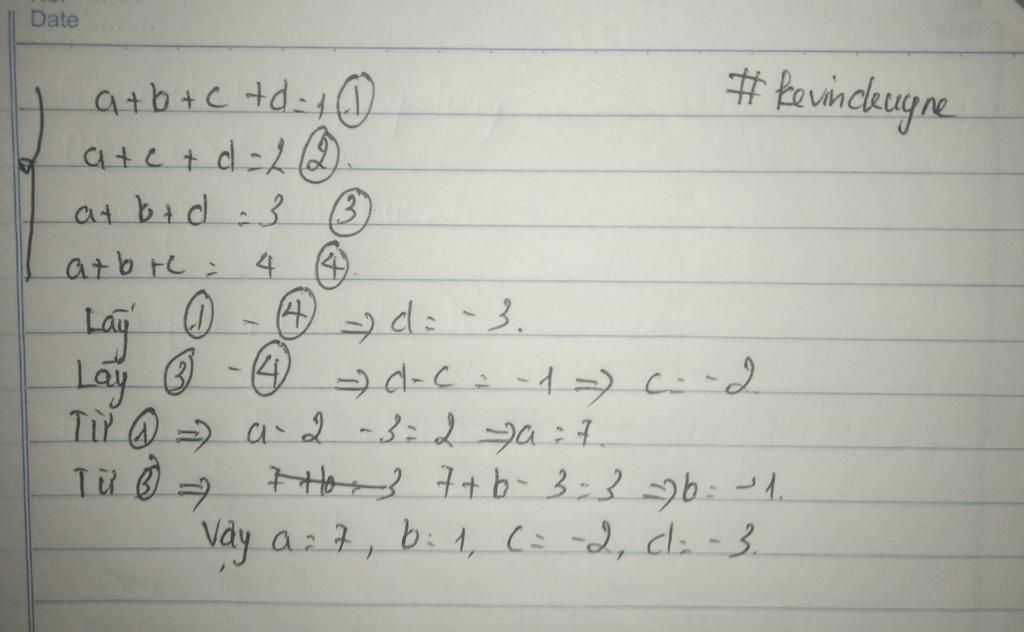 Date
a+b+c+d=1 ① #kevincleugne
a+c+d=2 ②.
a+b+d=3 ③
a+b+c=4 ④.
Lấy ① - ④ ⇒ d=-3.
Lấy ③ - ④ ⇒ d-c=-1 ⇒ c=-2.
Từ ① ⇒ a-2-3=2 ⇒ a=7.
Từ ③ ⇒ 7+b-3 7+b-3=3 ⇒ b=-1.
Vậy a=7, b=1, c=-2, d=-3.